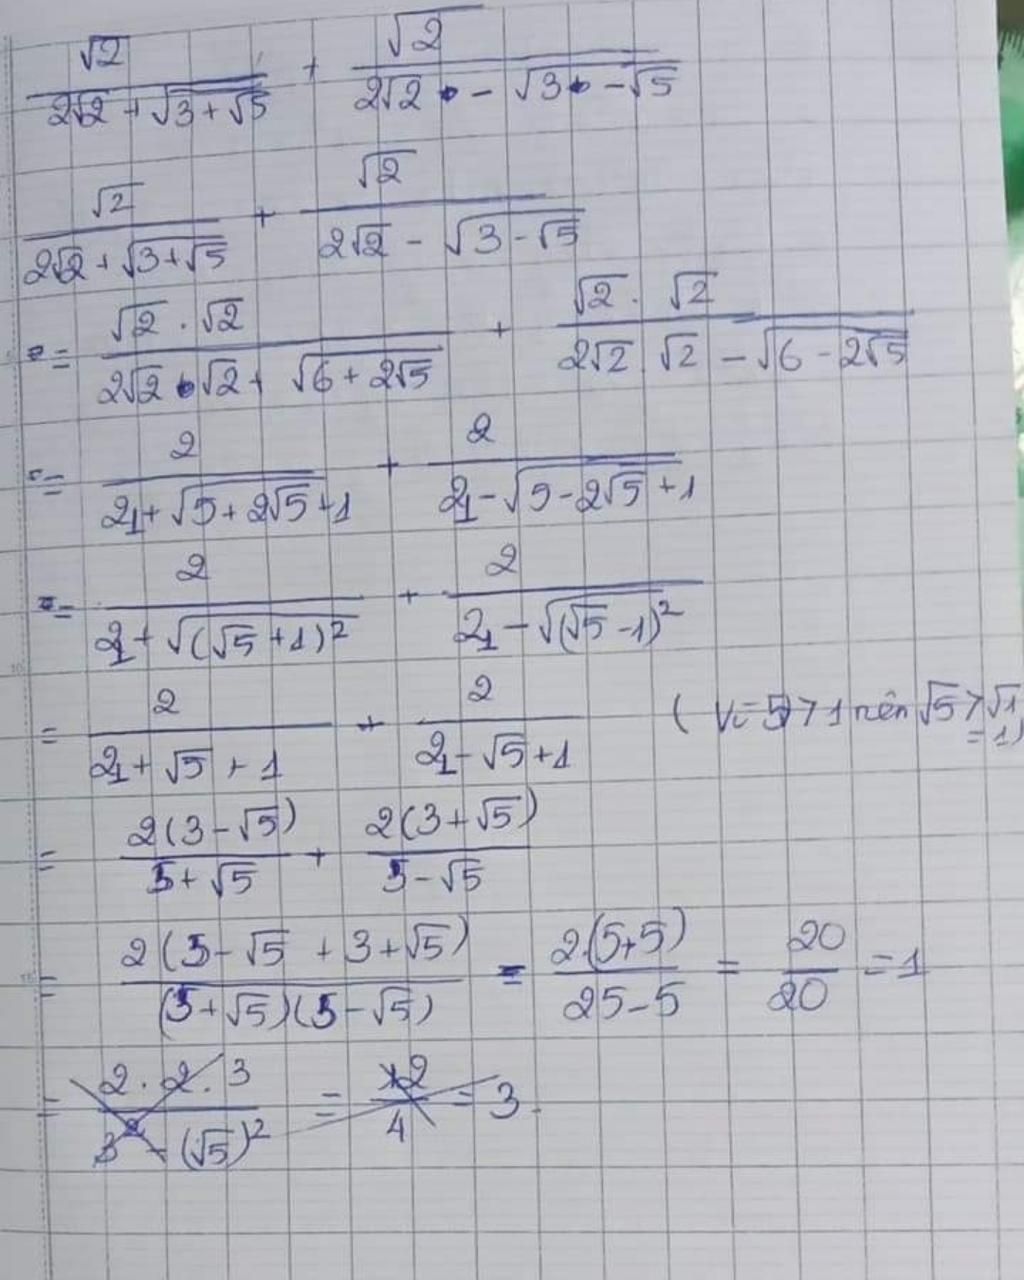 √2/(2√2 + √(3+√5)) + √2/(2√2 - √(3-√5))
√2/(2√2 + √(3+√5)) + √2/(2√2 - √(3-√5))
= (√2 . √2)/(2√2 . √2 + √(6+2√5)) + (√2 . √2)/(2√2 √2 - √(6-2√5))
= 2/(4 + √(5+2√5+1)) + 2/(4 - √(5-2√5+1))
= 2/(4 + √((√5+1)²)) + 2/(4 - √((√5-1)²))
= 2/(4 + √5 + 1) + 2/(4 - √5 + 1) ( Vì 5 > 1 nên √5 > √1 = 1)
= 2(3-√5)/(5+√5) + 2(3+√5)/(5-√5)
= 2(5-√5 + 3+√5)/((5+√5)(5-√5)) = 2.(5+5)/(25-5) = 20/20 = 1
= (2 . 2 . 3)/(3² - (√5)²) = 12/4 = 3